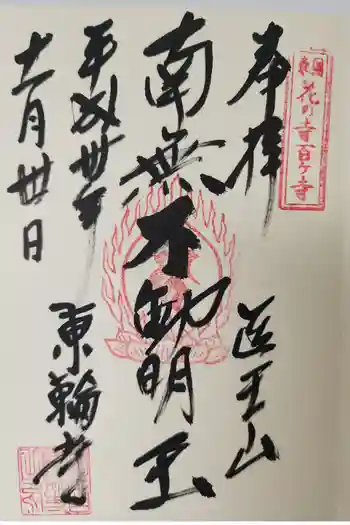 東国花の寺百ヶ寺
奉拝
医王山
南無不動明王
平成卅年
東輪寺
十一月卅日